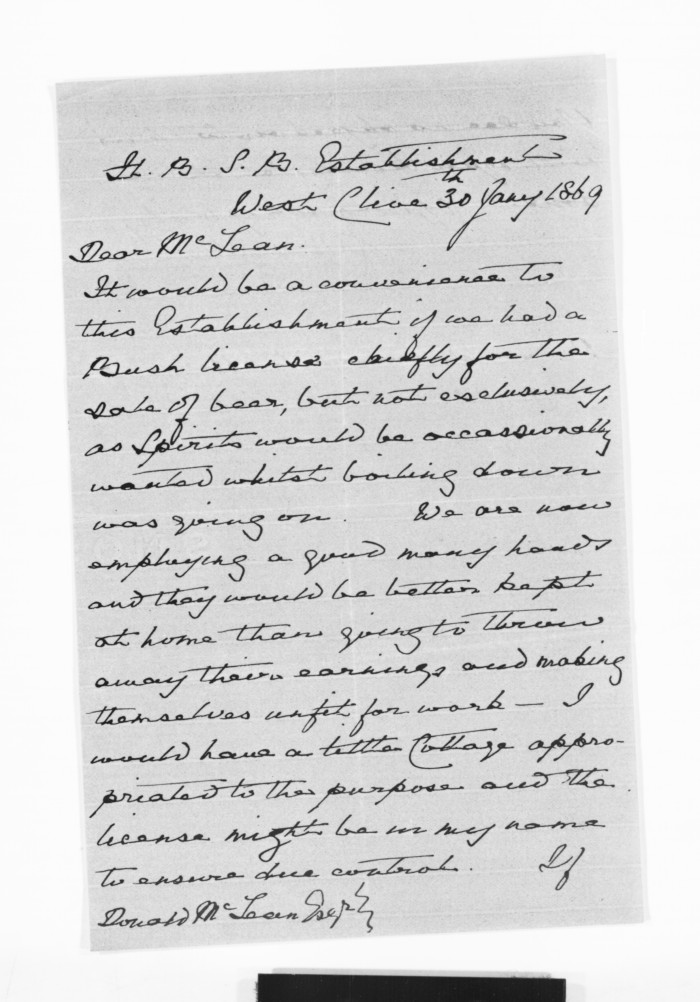 H. B. S. B. Establishment
West Clive 30th Jany 1869
Dear McLean.
It would be a convenience to
this Establishment if we had a
Bush license chiefly for the
sale of beer, but not exclusively,
as Spirits would be occassionally
wanted whilst boiling down
was going on. We are now
employing a good many hands
and they would be better kept
at home than going to throw
away their earnings and making
themselves unfit for work — I
would have a little Cottage appro-
priated to the purpose and the
license might be in my name
to ensure due control. If
Donald McLean Esqr